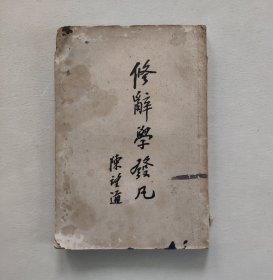 修辭學發凡
陳望道